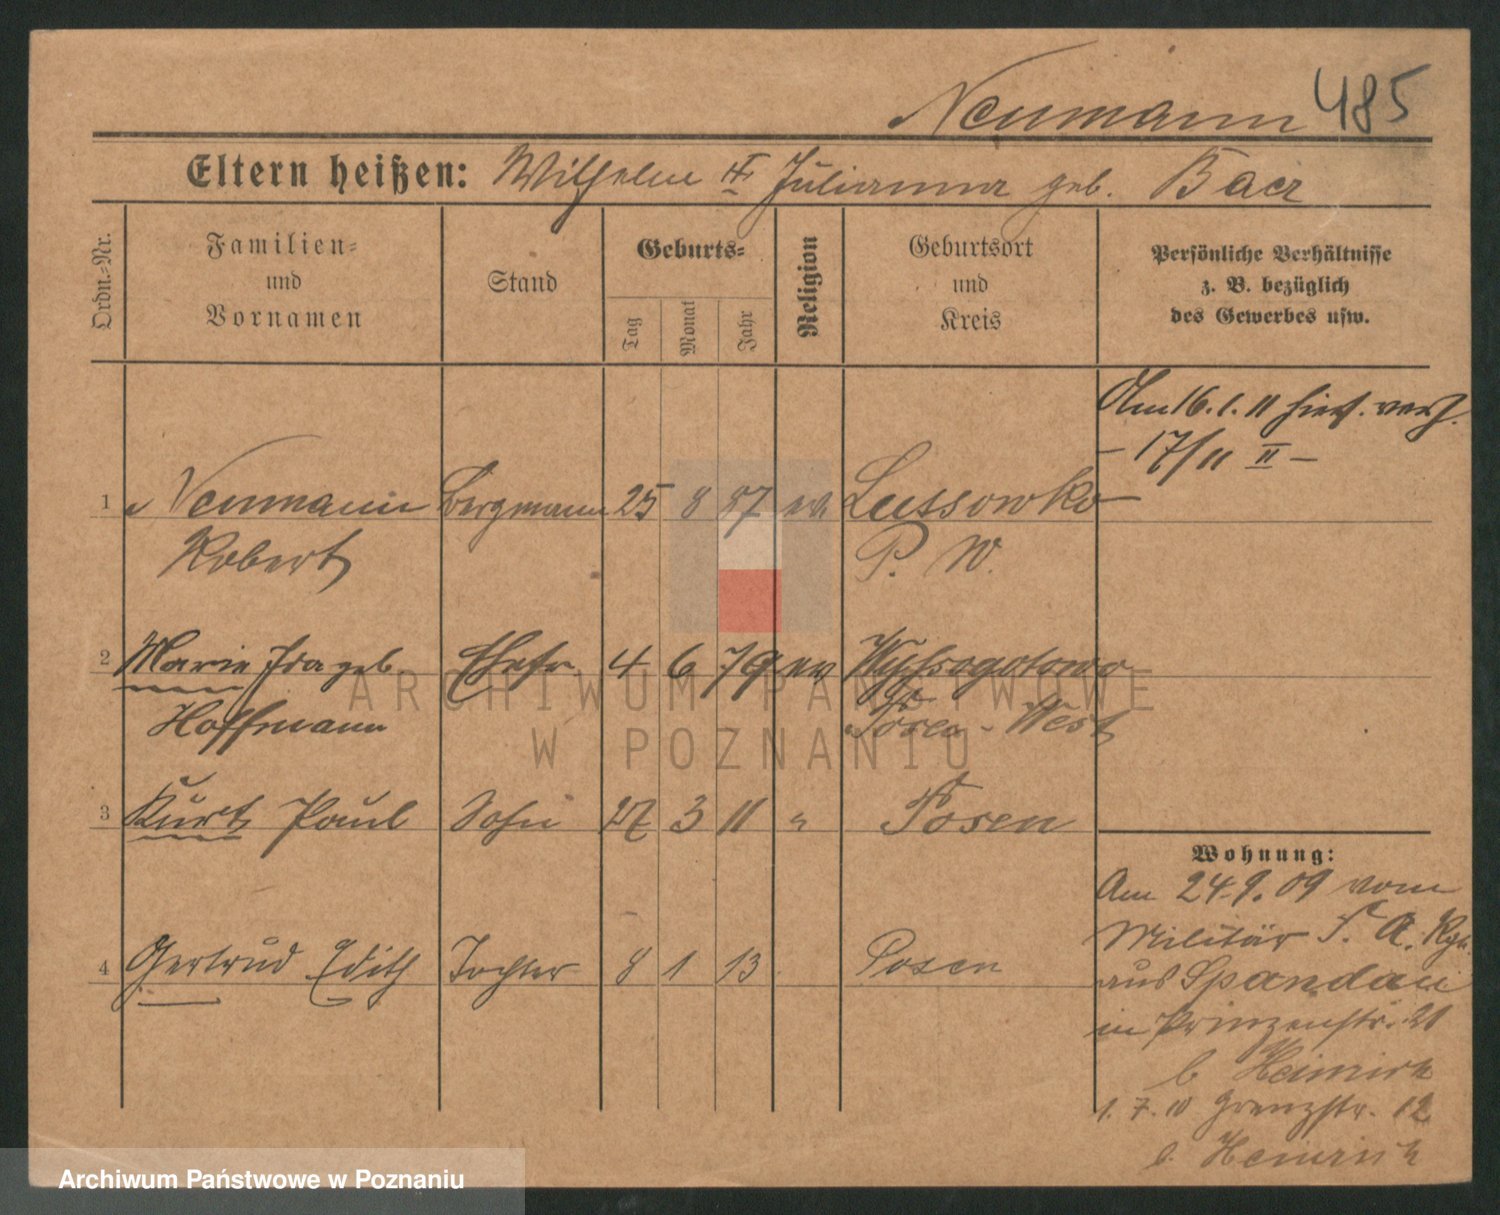 Neumann 485
Eltern heißen: Wilhelm u. Julianna geb. Baer
Ordn.-Nr.
Familien-
und
Vornamen
Stand
Geburts-
Tag
Monat
Jahr
Religion
Geburtsort
und
Kreis
Persönliche Verhältnisse
z. B. bezüglich
des Gewerbes usw.
Am 16.1.11 hier verh.
- 17/11 II -
1 Neumann Bergmann 25 8 87 ev. Lussowko
Robert P. W.
2 Marie Ida geb. Ehefr. 4 6 79 ev Wyssogotowo
Hoffmann Posen-West
3 Kurt Paul Sohn 27 3 11 " Posen
4 Gertrud Edith Tochter 8 1 13 Posen
Wohnung:
Am 24.9.09 vom
Militär F. A. Rgt.
aus Spandau
in Prinzenstr. 21
b Heinrich
1.7.10 Grenzstr. 12
b. Heinrich
ARCHIWUM PAŃSTWOWE
W POZNANIU
Archiwum Państwowe w Poznaniu